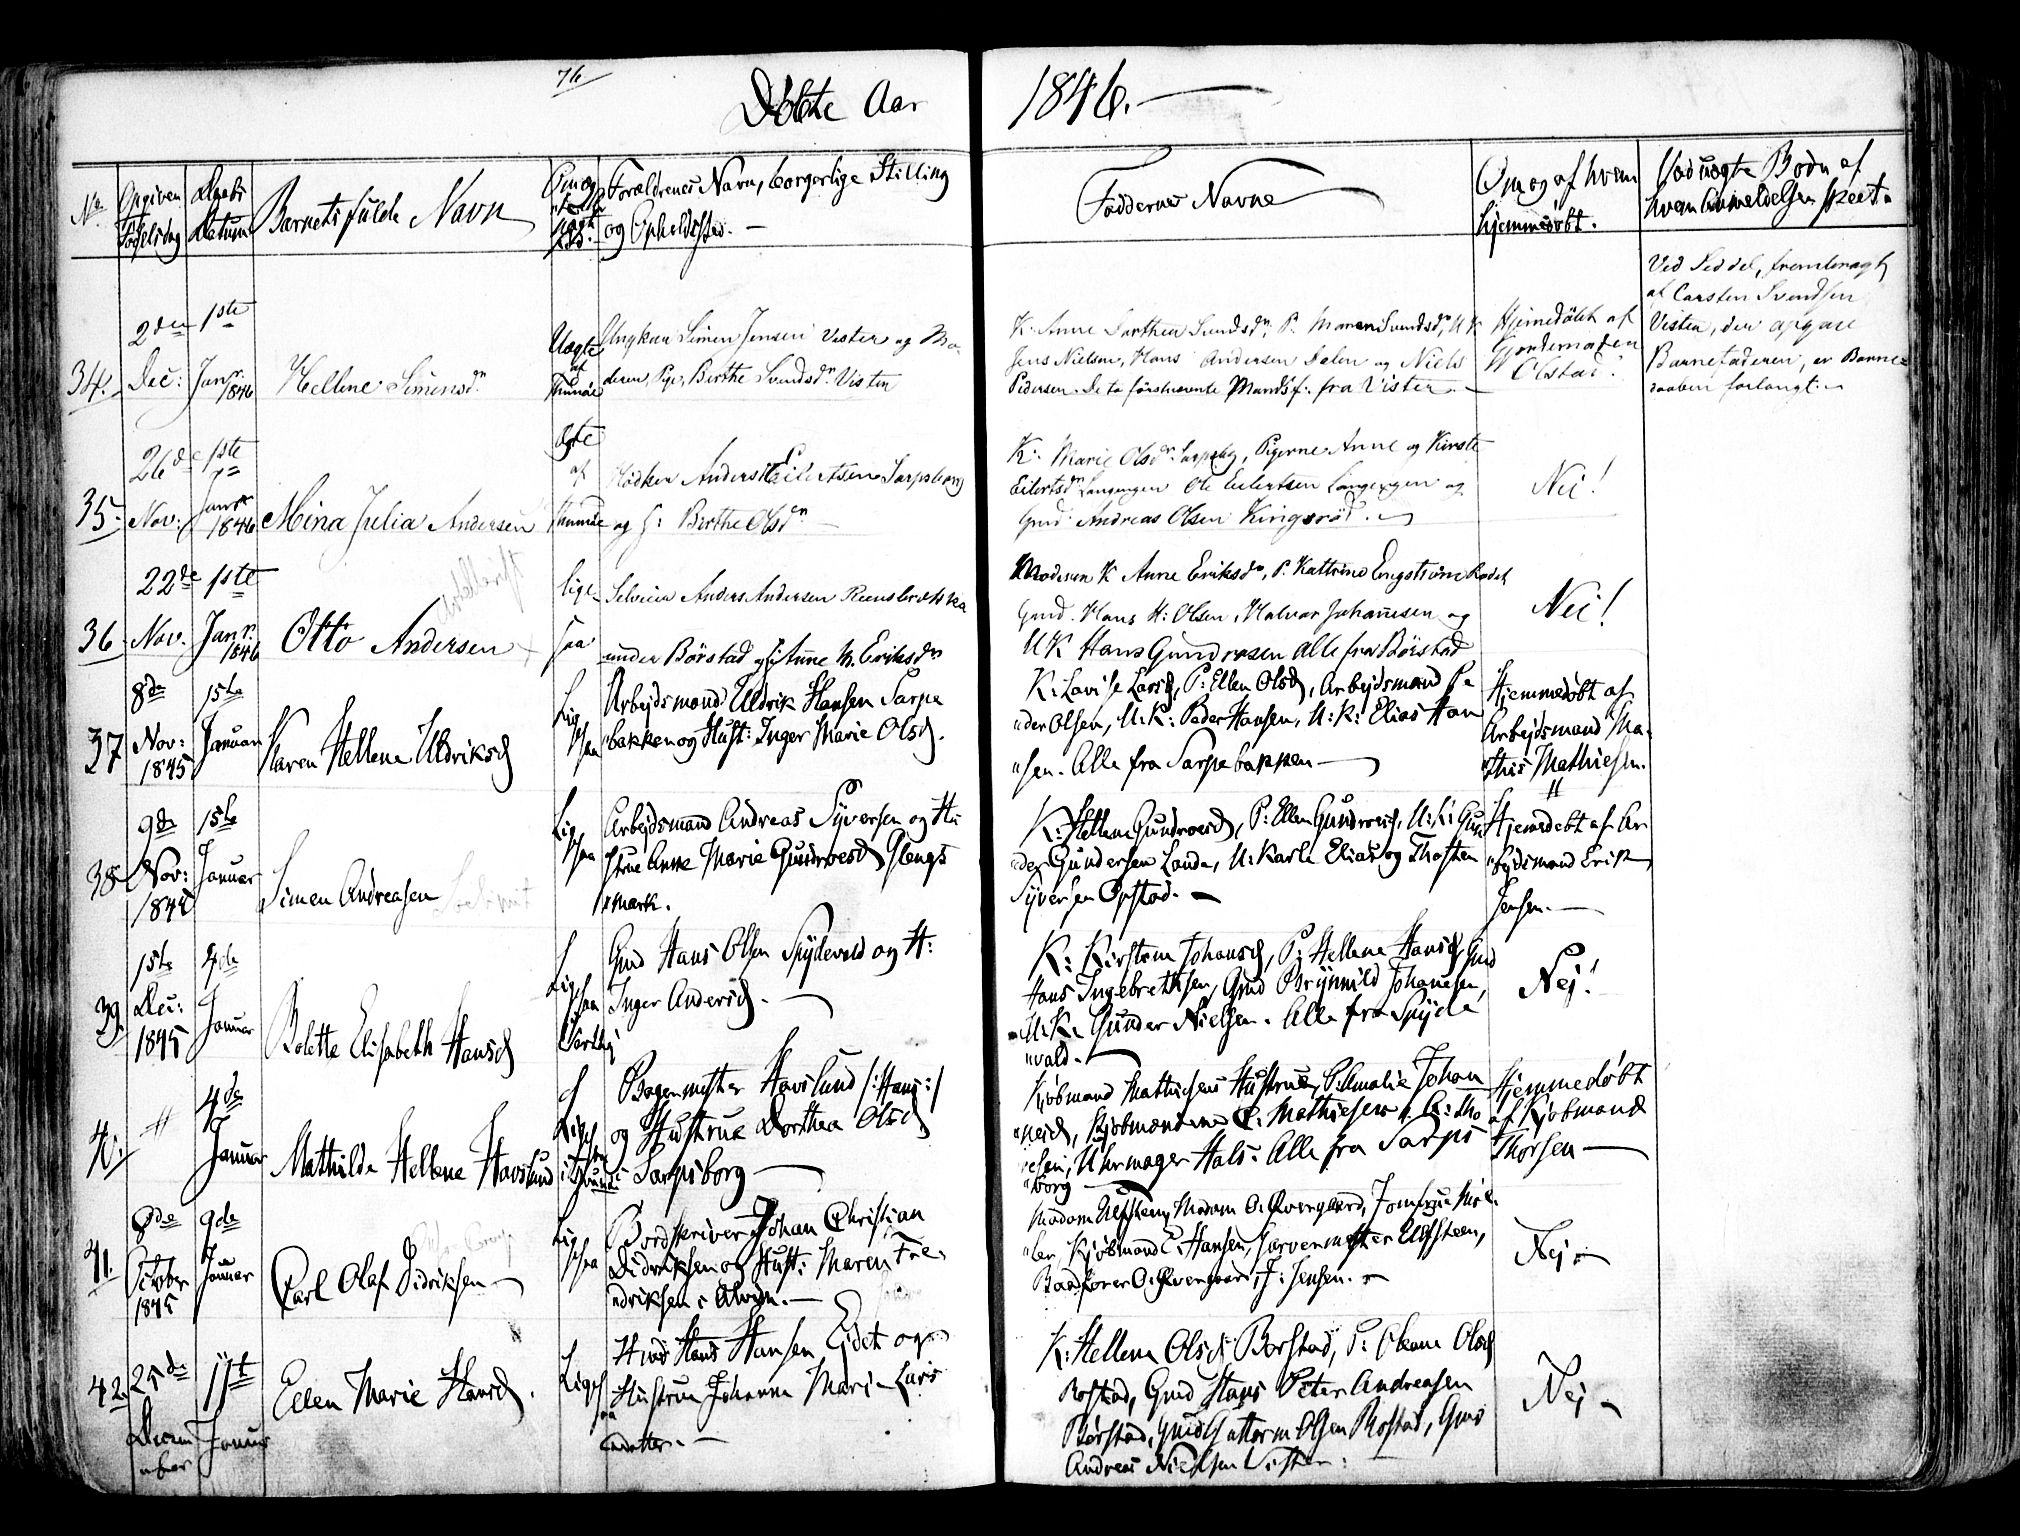 76
Døbte Aar 1846.
No
Opgiven Fødselsdag
Daabs Datum
Barnets fulde Navn
Om ægte
Forældrenes Navn, borgerlige Stilling
og Opholdssted.
Faddernes Navne
Om og af hvem
hjemmedøbt.
Ved uægte Børn af
hvem Anmeldelsen skeet.
34.
2den
Dec:
1ste
Janr.
1846
Hellene Simensdr.
Uægte
af
Ungkarl Simen Jensen Vister og Mo-
deren, Pige, Berthe Svendsdr. Visten
K. Anne Dorthea Svendsdr., P. Maren Svendsdr., UK
Jens Nielsen, Hans Andersen Dalen og Niels
Pedersen. De to førstnævnte Mandsf: fra Vister.
Hjemedøbt af
Gjordemoderen
Olstad.
Ved Seddel, frembragt
af Carsten Svendsen
Visten, der opgav
Barnefaderen, er Barne-
daaben forlangt.
35.
26de
Nov:
1ste
Janr.
1846
Mina Julia Andersen
Ægte
af
Anders Eilertsen Sarpsborg
og H: Berthe Olsdr.
K. Marie Olsdr. Sarpsbg, Pigerne Anne og Kirste
Eilertsdr. Langengen Ole Eilertsen Langengen og
Gmd. Andreas Olsen Kingsrød.
Nei!
36.
22de
Nov.
1ste
Janr.
1846
Otto Andersen
Lige-
saa
Selveier Anders Andersen
under Børstad og H: Anne M. Eriksdr
Moderen K Anne Eriksdr, P. Kattrine Engstrøm
Gmd. Hans H: Olsen, Halvor Johannesen og
UK Hans Gundersen Alle fra Børstad
Nei!
37
8de
Nov:
1845
1ste
Januar
Karen Hellene Uldriksd
Lig
saa
Arbejdsmand Uldrik Hansen Sarps
bakken og Hust: Inger Marie Olsd.
K: Lovise Larsd, P: Ellen Olsd, Arbejdsmand Pe
der Olsen, U:K: Peder Hansen, U:K: Elias Han
sen. Alle fra Sarpsbakken
Hjemmedøbt af
Arbejdsmand Ma-
this Mathiesen.
38
9de
Nov:
1845
1ste
Januar
Simen Andreasen
Lig
saa
Arbejdsmand Andreas Syversen og Hu
strue Anne Marie Gundersd Glengs
mark.
K: Hellene Gundersd, P: Ellen Gundersd, U:K: Gun
der Gundersen Lande, U:Karle Elias og Thosten
Syversen Opstad.
Hjemedøbt af Ar
bejdsmand Erik
Jensen.
39.
1ste
Dec:
1845
4de
Januar
Bolette Elisabeth Hansd
Lig
saa
Gmd Hans Olsen Spydevold og H:
Inger Andersd.
K: Kirsten Johansd, P: Hellene Hansd, Gmd
Hans Ingebrethsen, Gmd Brynnild Johansen,
U:K: Gunder Nielsen. Alle fra Spyde
vold.
Nej!
40.
4de
Januar
Mathilde Hellene Havslund
Bagermester Havslund /:Hans:/
og Hustrue Dorthea Olsd
i Sarpsborg
Kjøbmand Mathiesens Hustrue, P: Amalie Johan
nesd, Kjøbmændene C. Mathiesen, A: Tho
resen, Uhrmager Hals. Alle fra Sarps
borg
Hjemmedøbt
af Kjøbmand
Thorsen
41.
8de
October
1845
9de
Januar
Carl Olaf Didriksen
Lig
saa
Bordskriver Johan Christian
Didriksen og Hust: Maren Fre-
driksen
Madam Ulfsteen, Madam O. Qvergaard, Jomfrue
Kjøbmand C. Hansen, Garvermester Ulfsteen,
Baadfører O. Qvergaard, J: Jensen.
Nej
42.
25de
Decem
ber
11te
Januar
Ellen Marie Hansd.
Ligs
aa
Hmd Hans Hansen Eidet og
Hustrue Johanne Marie Lars
datter.
K: Hellena Olsd Borstad, P: Oleane Olsd
Borstad, Gmd Hans Peter Andreasen
Børstad, Gmd Guttorm Olsen Borstad, Gmd
Andreas Nielsen Visten.
Nej